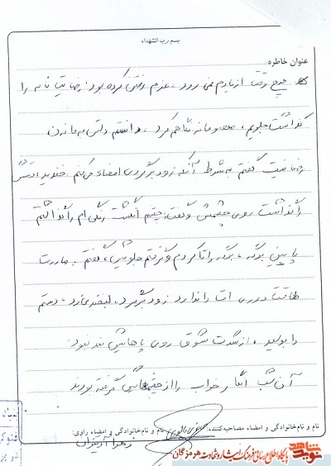 بسم رب الشهداء
عنوان خاطره:
هیچ وقت از یادم نمی رود، عزم رفتن کرده بود: رضایتنامه را
گذاشت جلویم، معصومانه نگاهم کرد. دانستم دلش به ماندن
نیست گفتم به شرط آنکه زود برگردی امضاء می کنم. خندید دستش
را گذاشت روی چشمش و گفت: چشم انگشت رنگی ام را گذاشتم
پایین برگه، برگه را تا کردم و گرفتم جلویش، گفتم: مادرت
طاقت دوری ات را ندارد زود برگرد، لبخندی زد، دستم
را بوسید، از شدت شوق روی پاهایش بند نبود.
آن شب انگار خواب را از چشمهایش گرفته بودند
نام و نام خانوادگی و امضاء مصاحبه کننده:
نام و نام خانوادگی و امضاء راوی:
زهرا
نوید شاهد
پایگاه اطلاع رسانی فرهنگ ایثار و شهادت هرمزگان